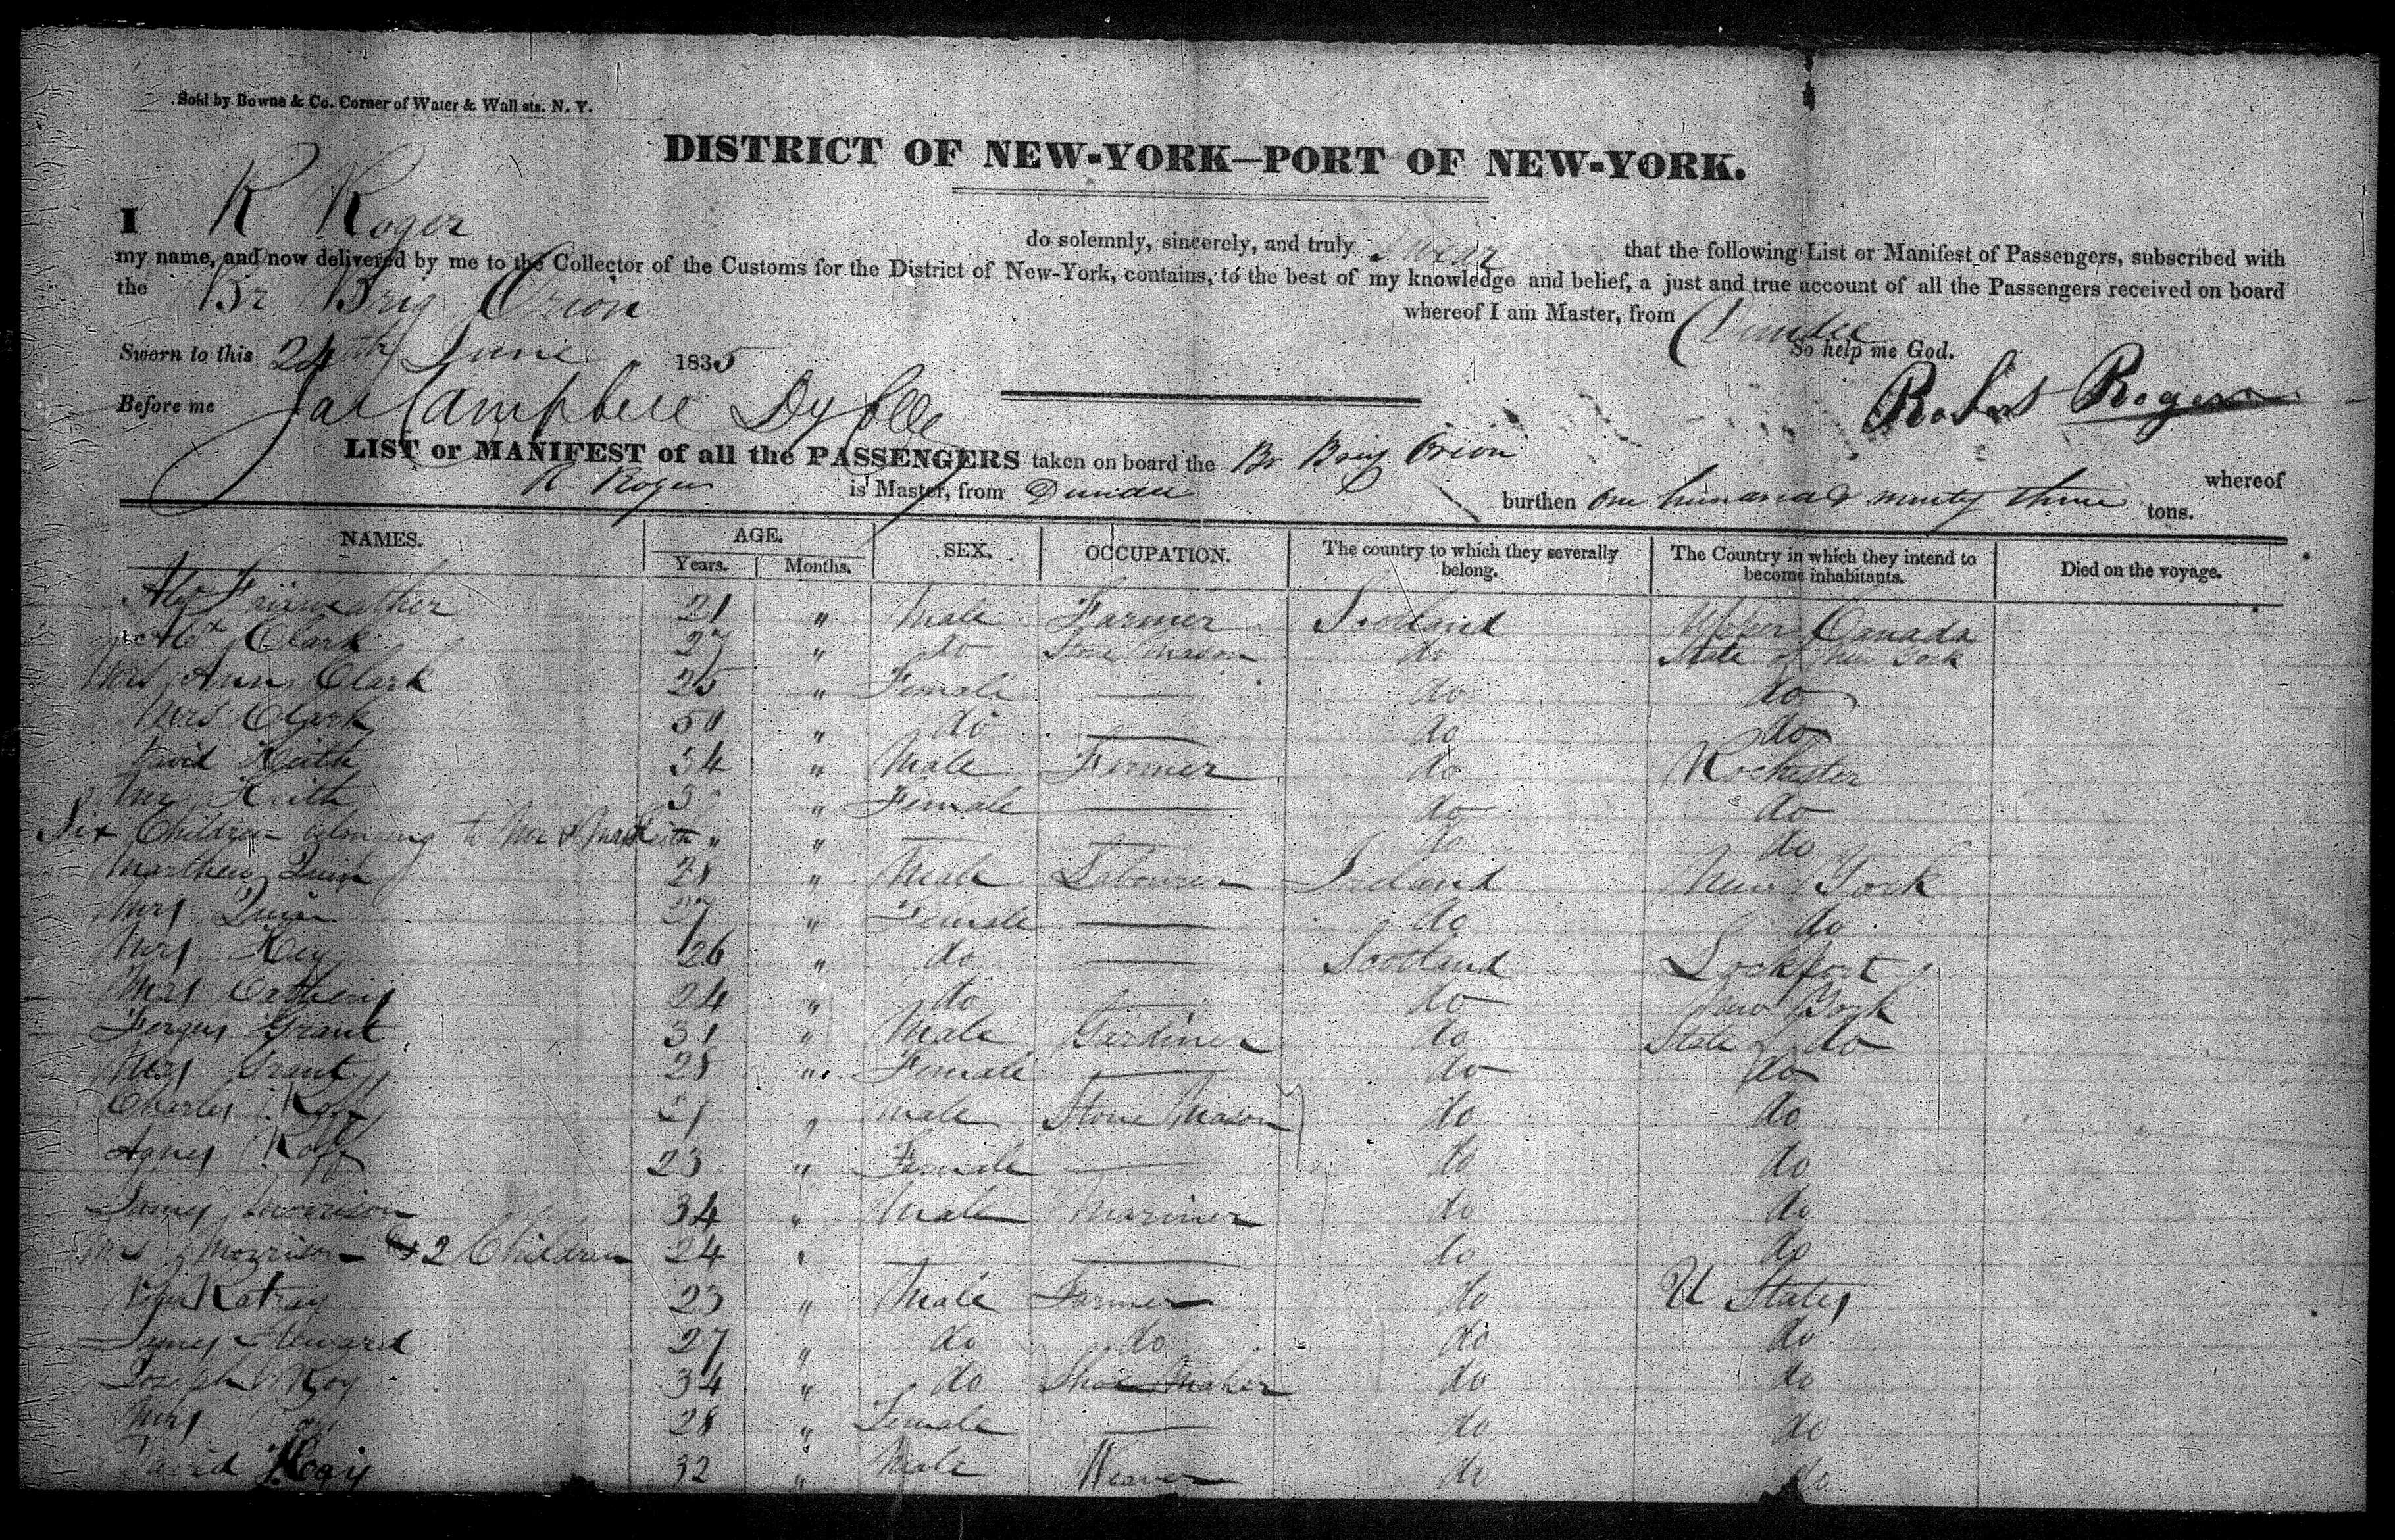 Sold by Bowne & Co. Corner of Water & Wall sts. N. Y.
DISTRICT OF NEW-YORK—PORT OF NEW-YORK.
I R Roger do solemnly, sincerely, and truly Swear that the following List or Manifest of Passengers, subscribed with
my name, and now delivered by me to the Collector of the Customs for the District of New-York, contains, to the best of my knowledge and belief, a just and true account of all the Passengers received on board
the Br Brig Orion whereof I am Master, from Dundee
So help me God.
Sworn to this 24th June 1835
Before me Campbell Robert Roger
LIST or MANIFEST of all the PASSENGERS taken on board the Br Brig Orion whereof
R Roger is Master, from Dundee burthen one hundred & ninety three tons.
NAMES. AGE. SEX. OCCUPATION. The country to which they severally belong. The Country in which they intend to become inhabitants. Died on the voyage.
Years. Months.
Alex Fairweather 21 " Male Farmer Scotland Upper Canada
Clark 27 " do Stone Mason do State of New York
Mrs Ann Clark 25 " Female — do do
Mrs Clark 50 " do — do do
David Keith 34 " Male Farmer do Rochester
Mrs Keith " Female — do do
Six Children belonging to Mr & Mrs Keith " " — do do
Marthew Quin 28 " Male Labourer Ireland New York
Mrs Quin 27 " Female — do do
Mrs Key 26 " do — Scotland Lockport
Mrs 24 " do — do New York
Fergus Grant 31 " Male Gardiner do State of do
Mrs Grant 28 " Female — do do
Charles Roff 21 " Male Stone Mason do do
Agnes Roff 23 " Female — do do
James Morrison 34 " Male Mariner do do
Mrs Morrison & 2 Children 24 " — — do do
Ratray 23 " Male Farmer do U States
James Steward 27 " do do do do
Joseph Roy 34 " do Shoe Maker do do
Mrs Roy 28 " Female — do do
David Hay 32 " Male Weaver do do